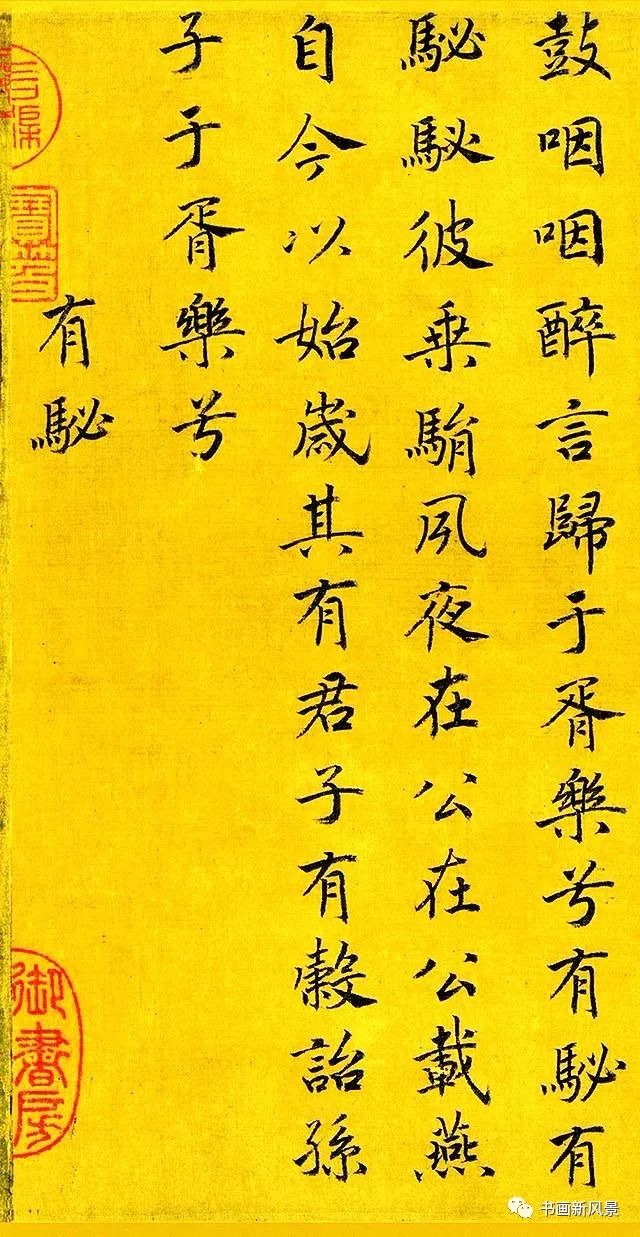 鼓咽咽醉言歸于胥樂兮有駜有
駜駜彼乗駽夙夜在公在公載燕
自今以始歲其有君子有穀詒孫
子于胥樂兮
有駜
御書房
书画新风景